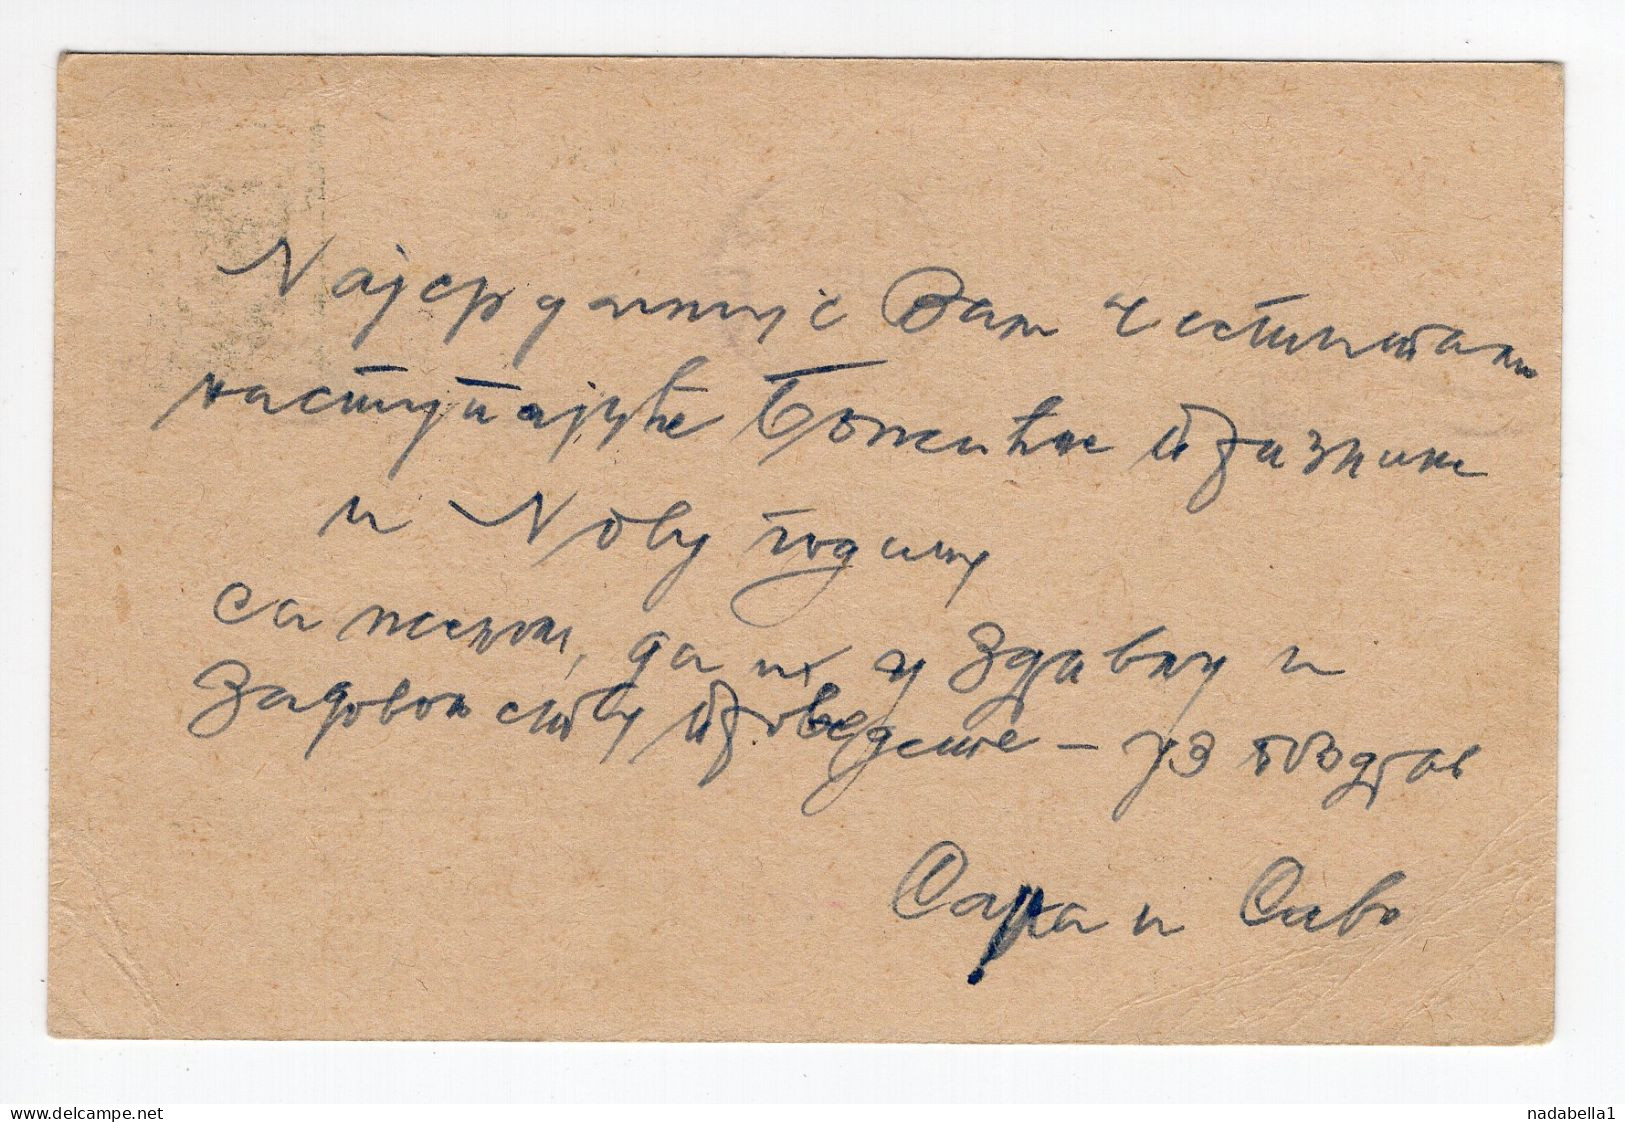 Најсрдачније Вам честитам
наступајуће Божићне празнике
и Нову годину
са жељом, да их у здрављу и
задовољству проведете – уз поздрав
Сара и Саво
delcampe.net
nadabella1